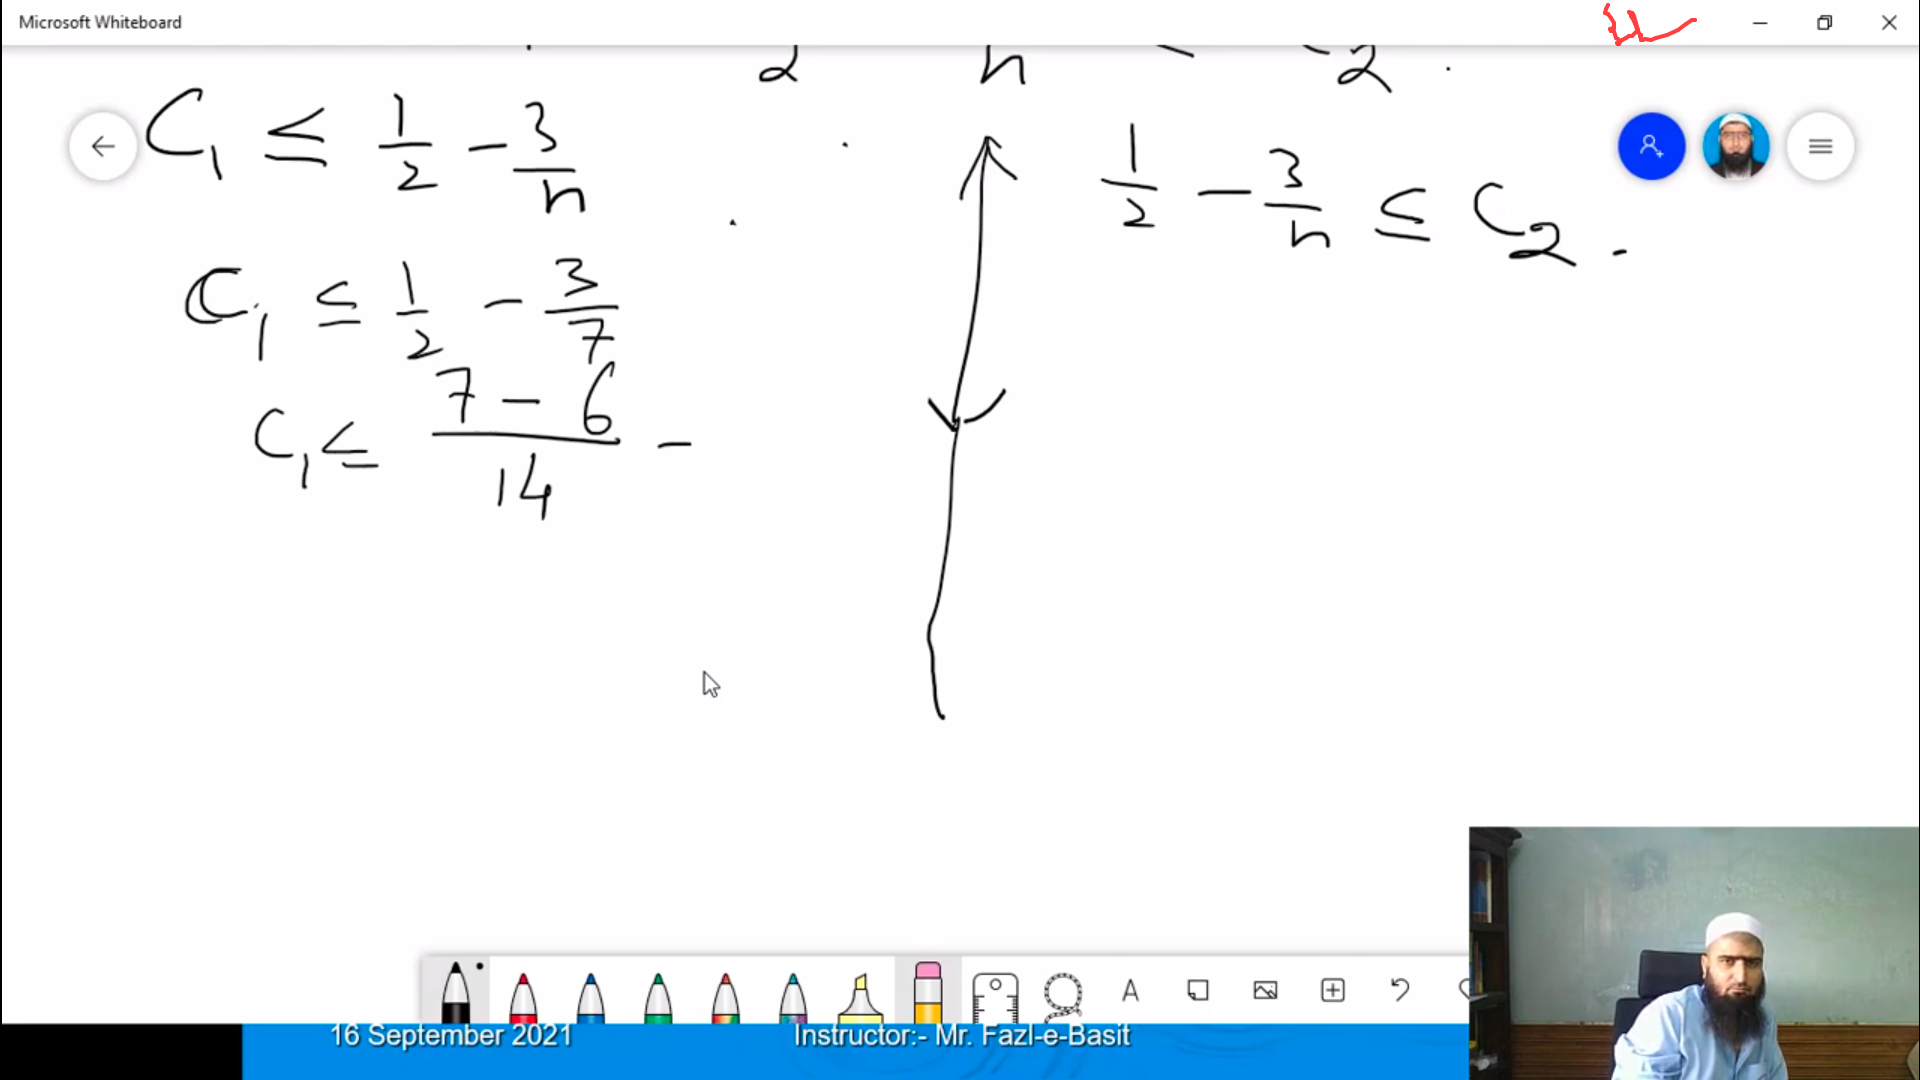 Microsoft Whiteboard
2 n 2 .
C₁ ≤ 1/2 - 3/n
1/2 - 3/n ≤ C₂ .
C₁ ≤ 1/2 - 3/7
C₁ ≤ 7 - 6 / 14 -
A
16 September 2021
Instructor:- Mr. Fazl-e-Basit